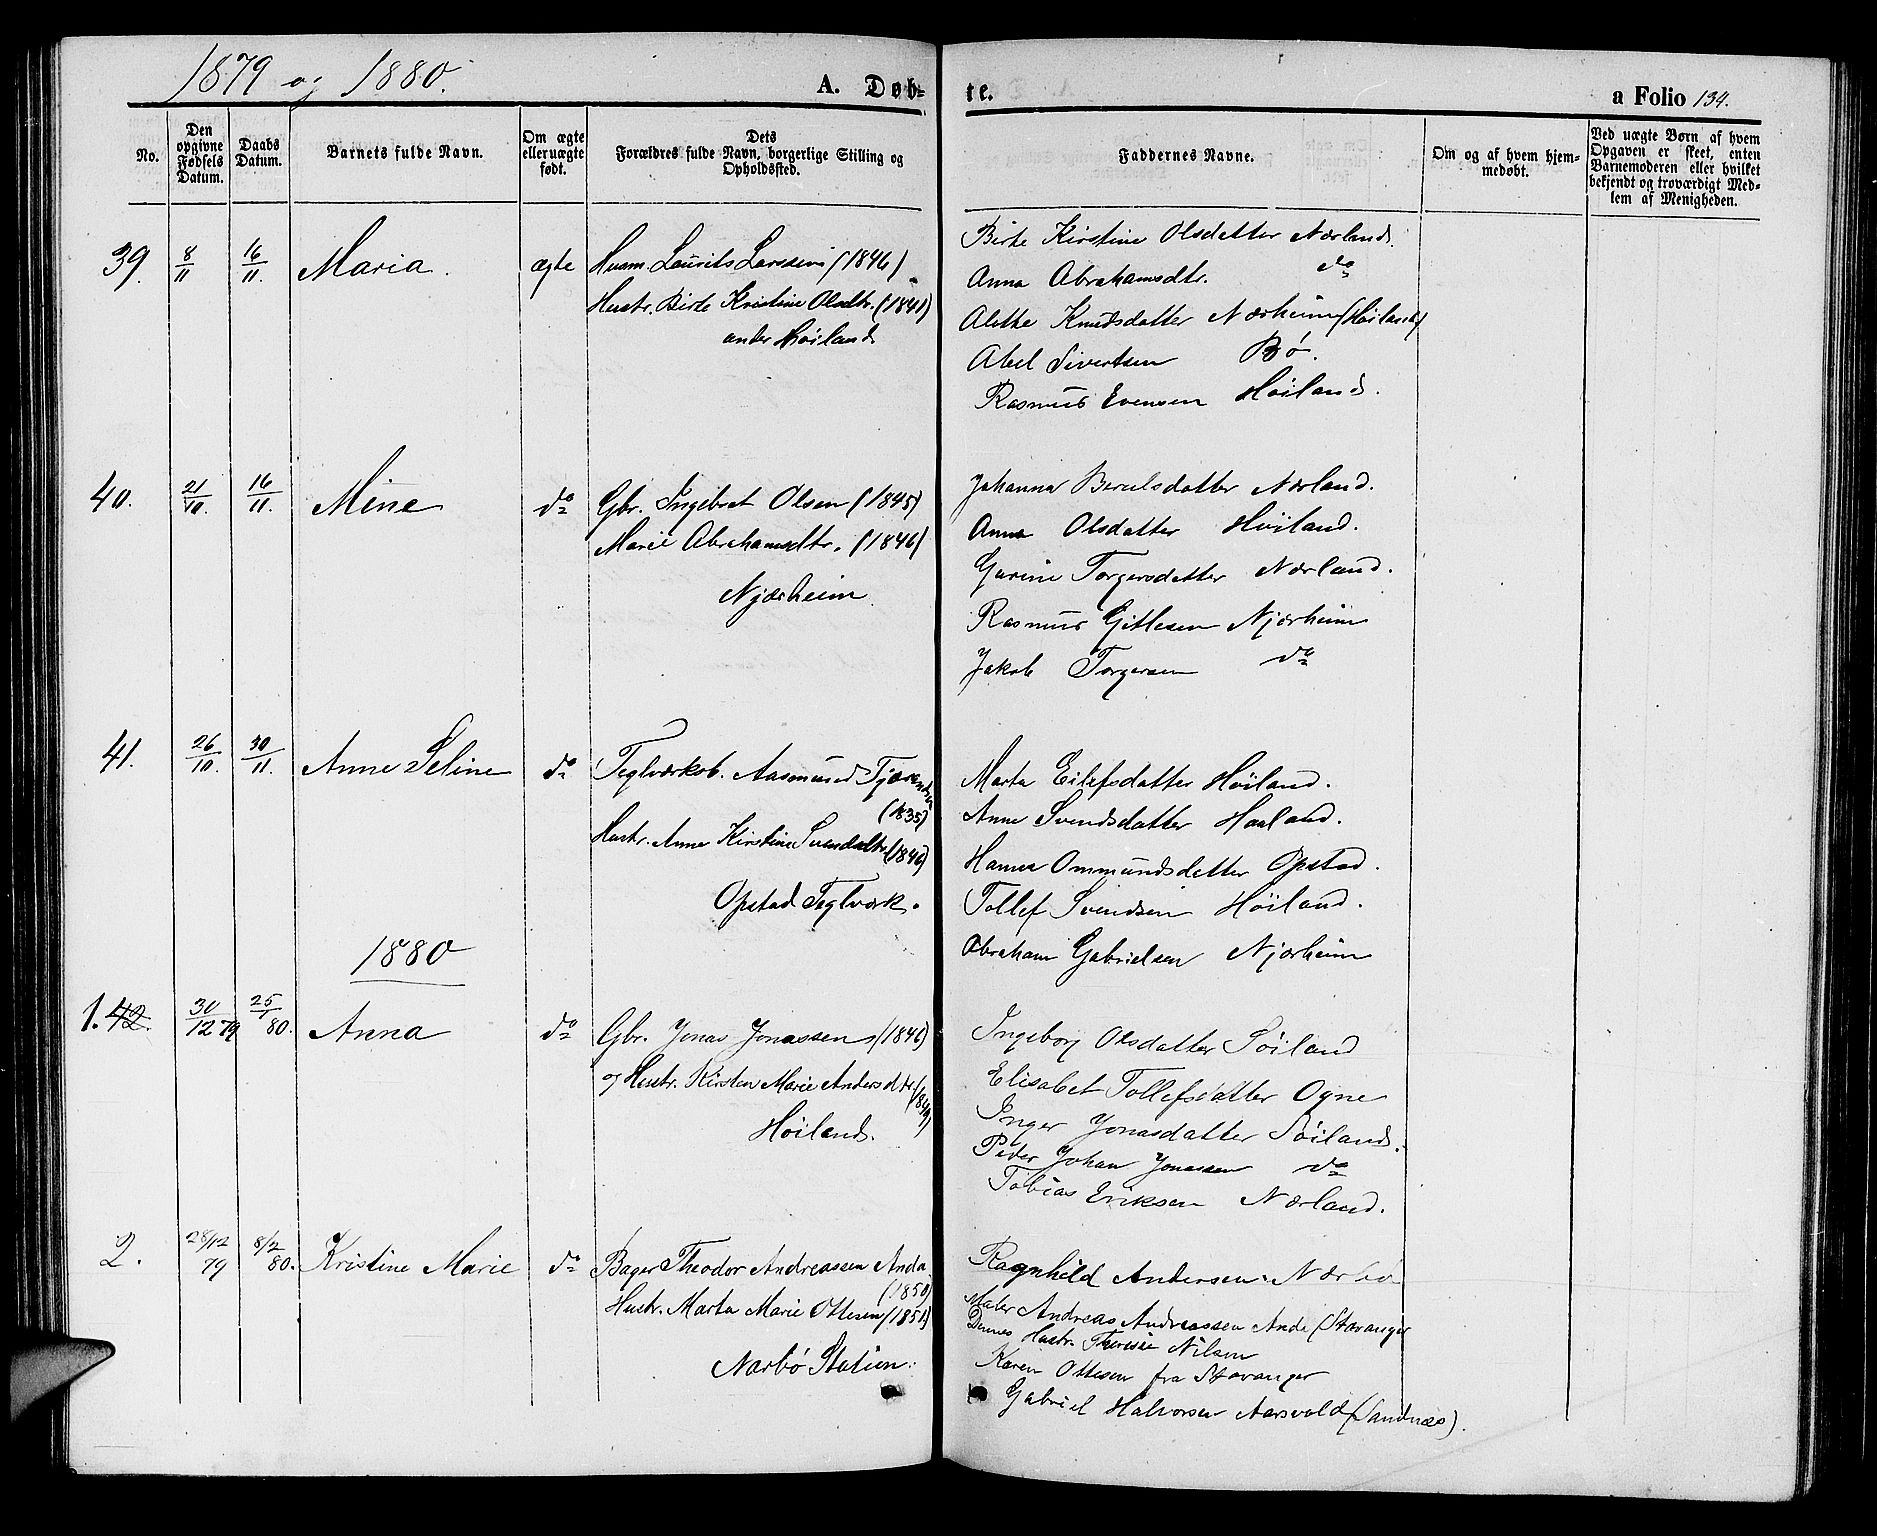 1879 og 1880.
A. Døb-
te.
a Folio 134.
No.
Den opgivne Fødsels Datum.
Daabs Datum.
Barnets fulde Navn.
Om ægte eller uægte født.
Dets Forældres fulde Navn, borgerlige Stilling og Opholdssted.
Faddernes Navne.
Om og af hvem hjem-
medøbt.
Ved uægte Børn, af hvem
Opgaven er skeet, enten
Barnemoderen eller hvilket
bekjendt og troværdigt Med-
lem af Menigheden.
39. 8/11 16/11. Maria. ægte Husm. Laurits Larssen (1846)
Hustr. Birte Kristine Olsdtr. (1841)
under Høiland
Birte Kirstine Olsdatter Nærland.
Anna Abrahamsdtr. do
Alethe Knudsdatter Nærheim (Høiland)
Abel Sivertsen Bø.
Rasmus Evensen Høiland.
40. 21/10. 16/11. Mine do Gbr. Ingebret Olsen (1845)
Marie Abrahamsdtr. (1846)
Njærheim
Johanna Berulsdatter Nærland.
Anna Olsdatter Høiland.
Gurine Torgersdatter Nærland.
Rasmus Gitlesen Njærheim
Jakob Torgersen do
41. 26/10. 30/11. Anne Seline do Teglværksb. Aasmund
(1835)
Hustr. Anne Kirstine Svendsdtr (1846)
Opstad Teglværk.
Marta Eilefsdatter Høiland.
Anne Svendsdatter Haaland.
Hanna Ommundsdatter Opstad.
Tollef Svendsen Høiland.
Abraham Gabrielsen Njærheim
1880
1. 42. 30/12 79 25/1 80. Anna do Gbr. Jonas Jonassen (1846)
og Hustr. Kirsten Marie Andersdtr
Høiland.
Ingeborg Olsdatter Søiland
Elisabet Tollefsdatter Ogne
Inger Jonasdatter Søiland.
Peder Johan Jonassen do
Tobias Eriksen Nærland.
2. 28/12 79 8/2 80. Kristine Marie do Bager Theodor Andreassen Anda
(1850)
Hustr. Marta Marie Ottesen (1851)
Nærbø Station.
Ragnhild Andersen. Nærbø
Maler Andreas Andreassen Anda (Stavanger
Dennes Hustr. Therese Nilsen
Karen Ottesen fra Stavanger
Gabriel Halvorsen Aarsvold (Sandnæs).